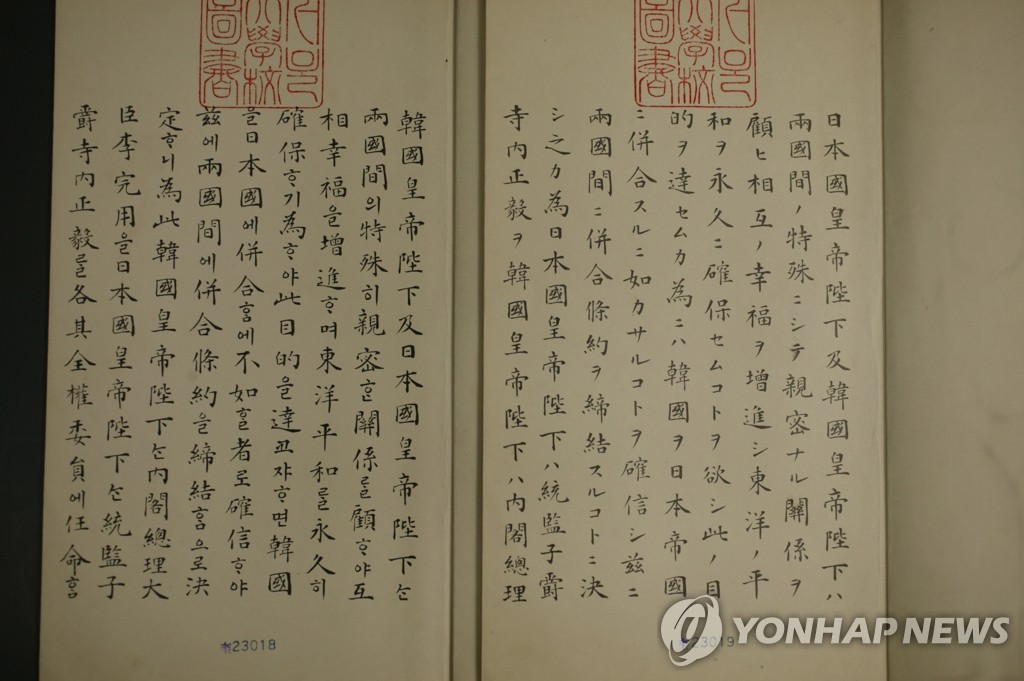 大學校
圖書
韓國皇帝陛下及日本國皇帝陛下ᄂᆞᆫ
兩國間의特殊히親密ᄒᆞᆫ關係를顧ᄒᆞ야互
相幸福을增進ᄒᆞ며東洋平和를永久히
確保ᄒᆞ기為ᄒᆞ야此目的을達코쟈ᄒᆞ면韓國
을日本國에併合ᄒᆞᆷ에不如ᄒᆞᆯ者로確信ᄒᆞ야
玆에兩國間에併合條約을締結ᄒᆞᆷ으로決
定ᄒᆞ니為此韓國皇帝陛下ᄂᆞᆫ內閣總理大
臣李完用을日本國皇帝陛下ᄂᆞᆫ統監子
爵寺內正毅를各其全權委員에任命ᄒᆞᆷ
23018
大學校
圖書
日本國皇帝陛下及韓國皇帝陛下ハ
兩國間ノ特殊ニシテ親密ナル關係ヲ
顧ヒ相互ノ幸福ヲ增進シ東洋ノ平
和ヲ永久ニ確保セムコトヲ欲シ此ノ目
的ヲ達セムカ為ニハ韓國ヲ日本帝國
ニ併合スルニ如カサルコトヲ確信シ玆ニ
兩國間ニ併合條約ヲ締結スルコトニ決
シ之カ為日本國皇帝陛下ハ統監子爵
寺內正毅ヲ韓國皇帝陛下ハ內閣總理
23019
YONHAP NEWS